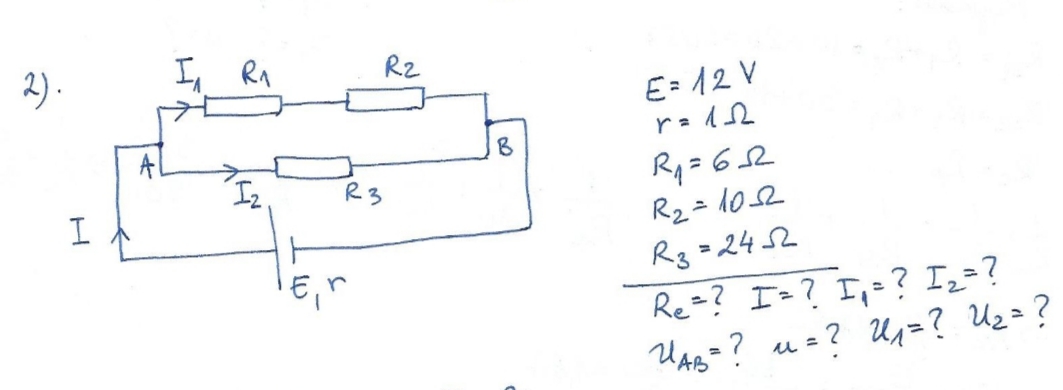 2).
I₁ R₁ R₂
A B
I₂ R₃
I
E, r
E = 12 V
r = 1 Ω
R₁ = 6 Ω
R₂ = 10 Ω
R₃ = 24 Ω
Re = ? I = ? I₁ = ? I₂ = ?
U_AB = ? u = ? U₁ = ? U₂ = ?